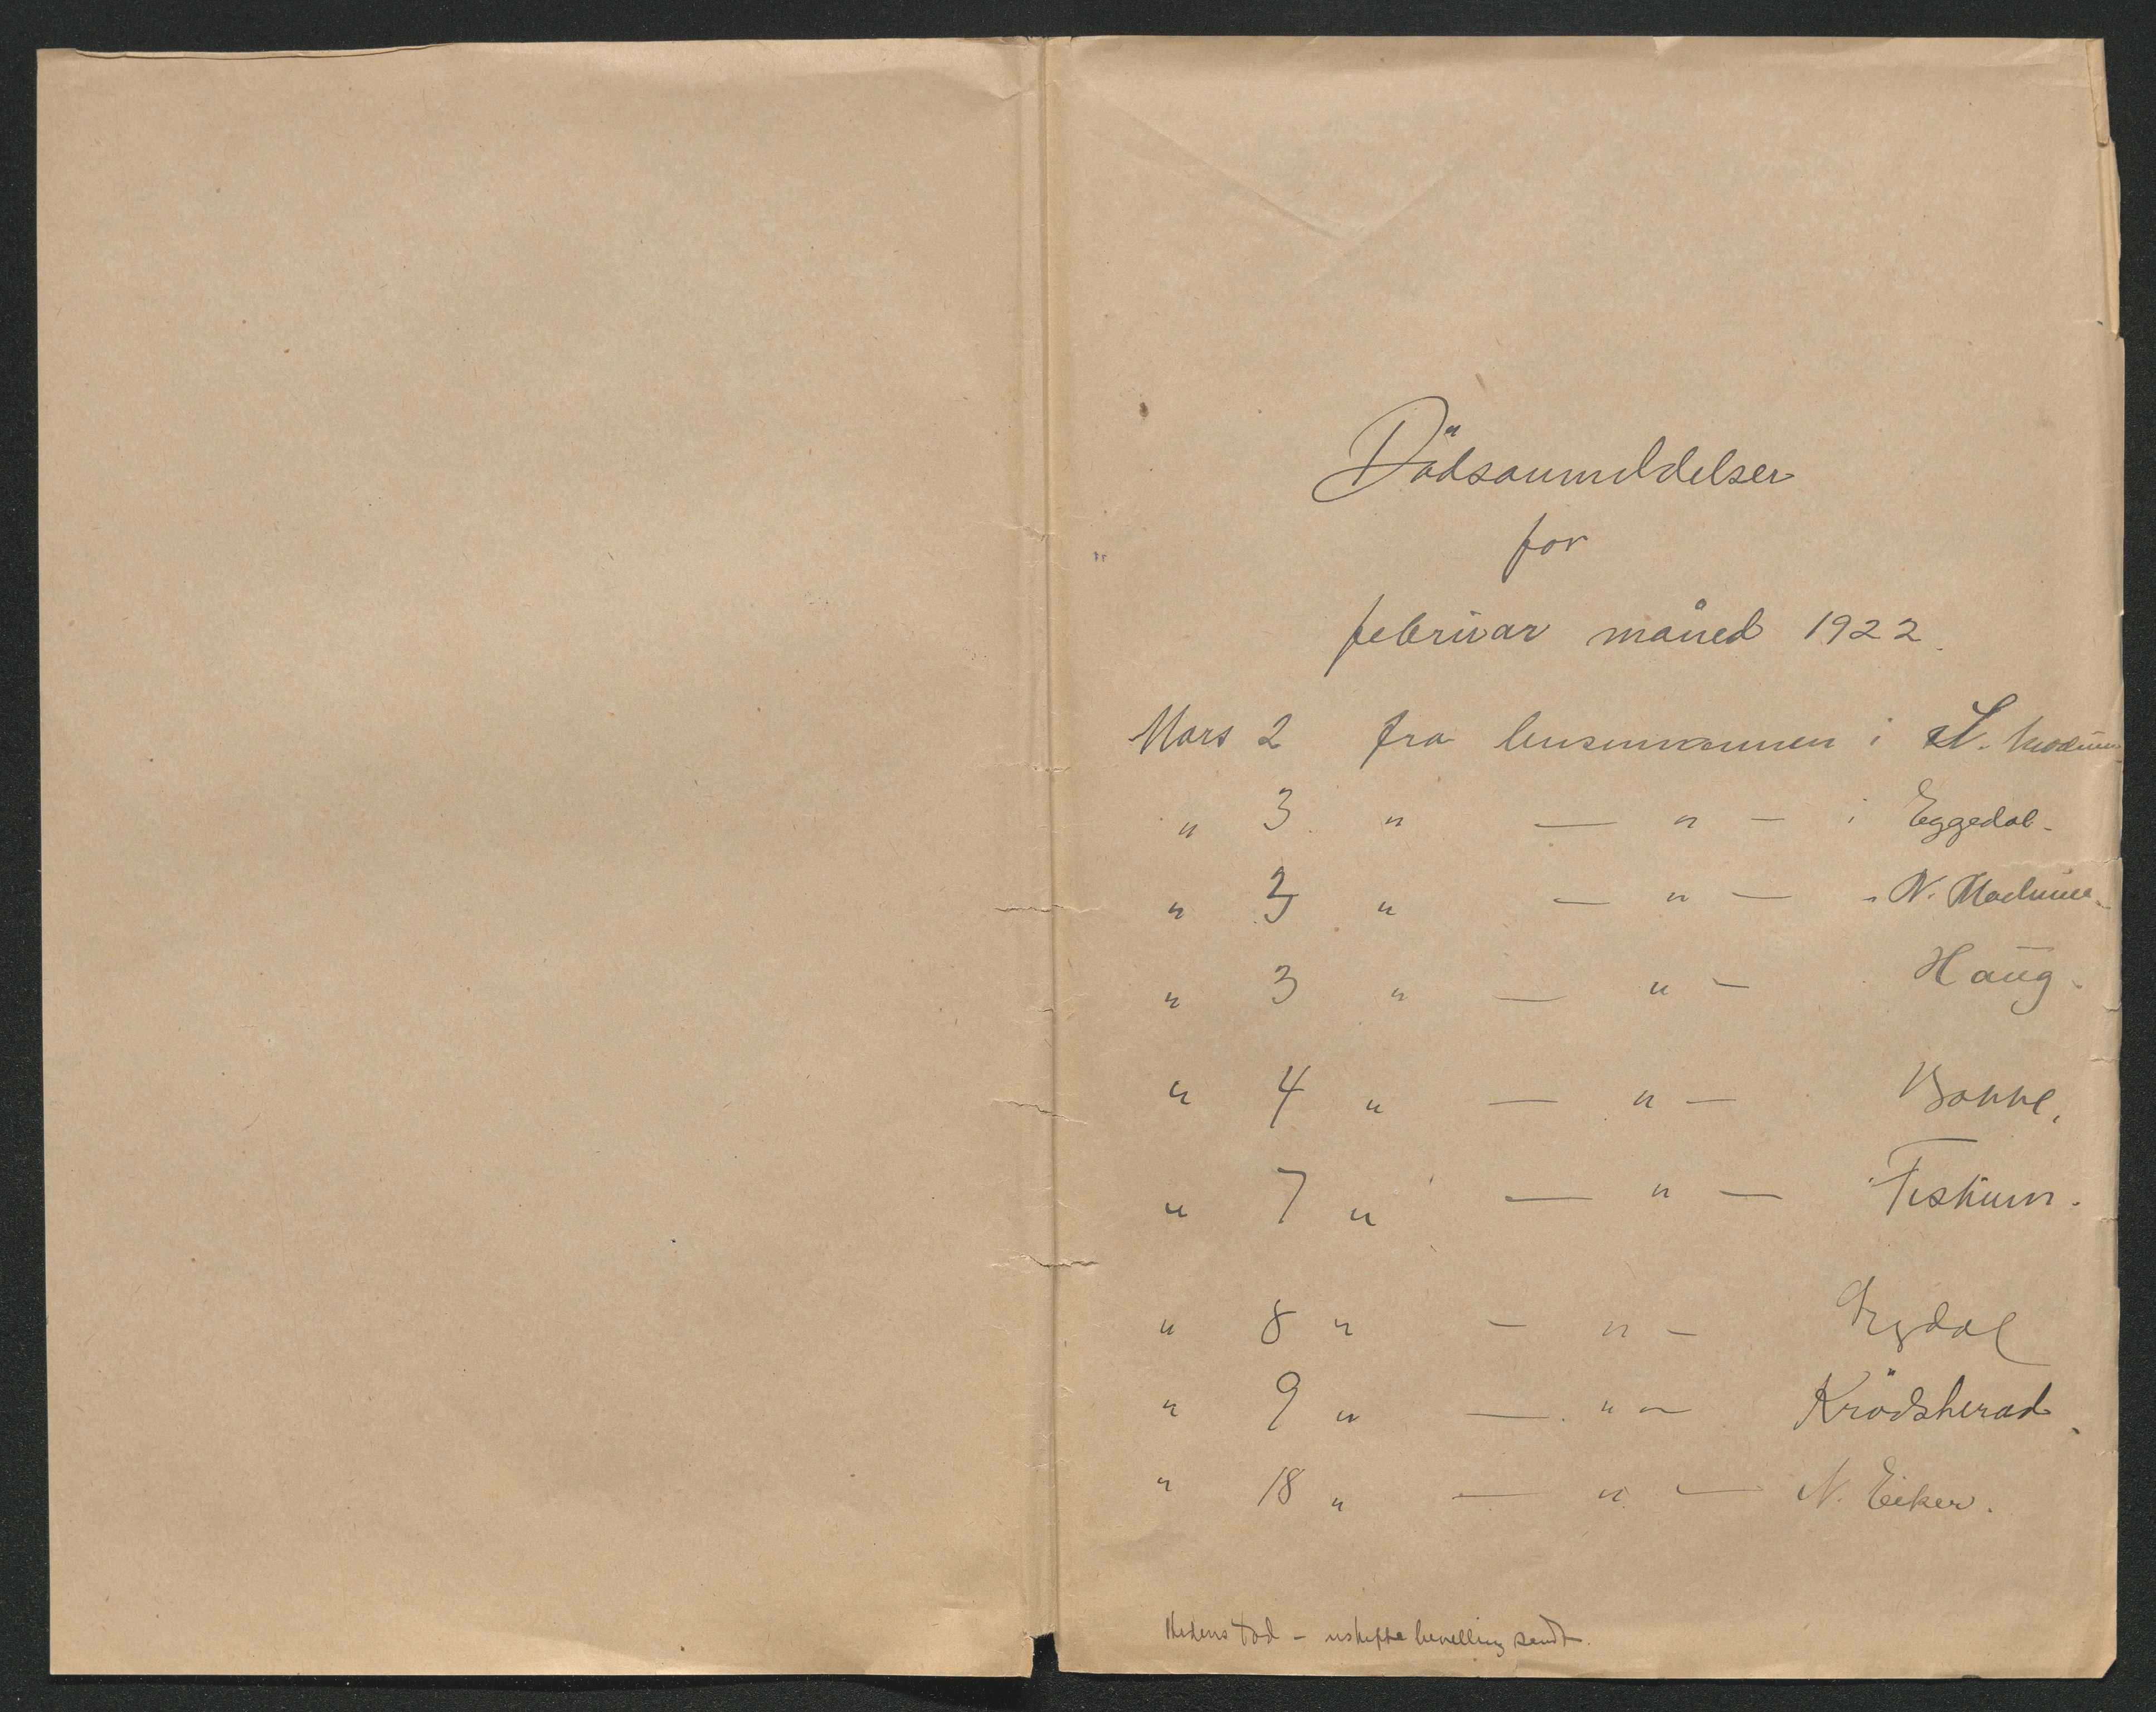 Dödsanmeldelser
for
februar måned 1922.
Mars 2 fra lensmannen i S. Modum
" 3 " — " — i Eggedal.
" 3 " — " — " N. Modum.
" 3 " — " — Haug.
" 4 " — " —
" 7 " — " — Fiskum.
" 8 " — " — Sigdal
" 9 " — " — Krödsherad.
" 18 " — " — N. Eiker.
uskiftebevilling sendt.